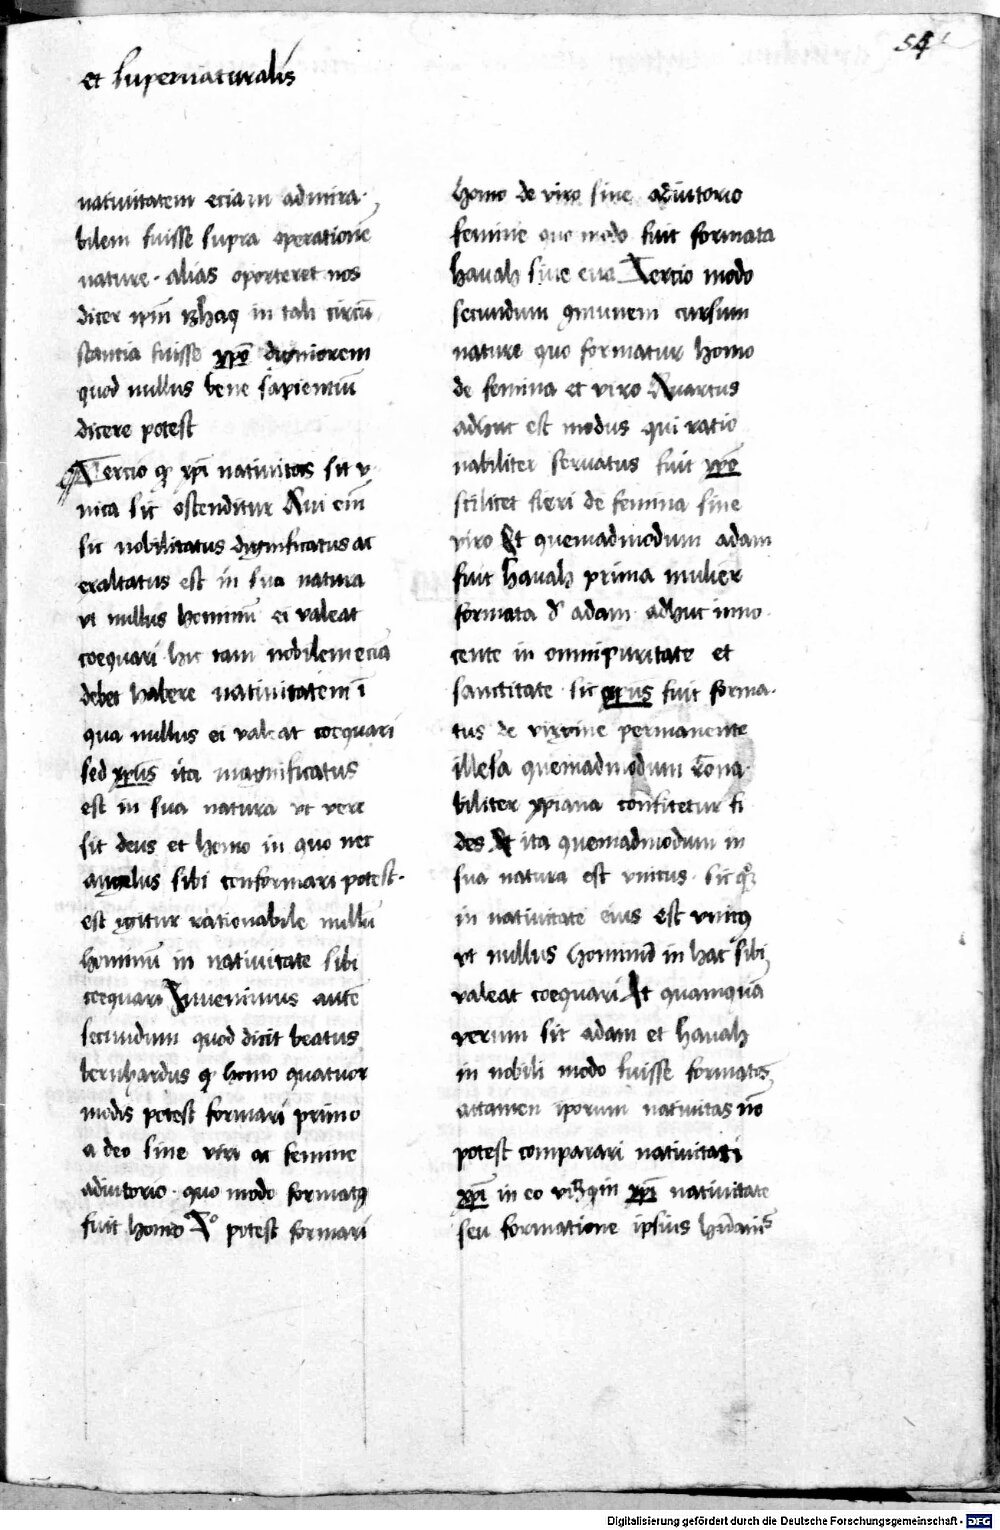 54
et supernaturalis
natiuitatem eciam admira-
bilem fuisse supra operationē
nature. alias oporteret nos
dicer ip̄m in tali circū
stantia fuisse xp̄o digniorem
quod nullus bene sapientiū
dicere potest
Tercio ꝙ xp̄i natiuitas sit v
nica sic ostenditur Qui em̄
sic nobilitatus dignificatus ac
exaltatus est in sua natura
vt nullus hominū ei valeat
coequari hic tam nobilem eciā
debet habere natiuitatem ī
qua nullus ei valeat coequari
sed xp̄us ita magnificatus
est in sua natura vt vere
sit deus et homo in quo nec
angelus sibi conformari potest.
est igitur rationabile nullū
hominū in natiuitate sibi
coequari Inuenimus autē
secundum quod dicit beatus
bernhardus ꝙ homo quatuor
modis potest formari primo
a deo sine viri ac femine
adiutorio. quo modo formatꝰ
fuit homo 2º potest formari
homo de viro sine adiutorio
femine quo modo fuit formata
hauah siue eua Tercio modo
secundum ꝯmunem cursum
nature quo formatur homo
de femina et viro Quartus
adhuc est modus qui ratio
nabiliter seruatus fuit xp̄o
scilicet fieri de femina sine
viro Et quemadmodum adam
fuit hauah prima mulier
formata d̕ adam adhuc inno.
cente in omni puritate et
sanctitate sic xp̄us fuit forma.
tus de virgine permanente
illesa quemadmodum rōna-
biliter xp̄iana confitetur fi
des Et ita quemadmodum in
sua natura est vnicus. sic qͦꝫ
in natiuitate eius est vnicꝰ
vt nullus hominū in hac sibi
valeat coequari Et quamquā
verum sit adam et hauah
in nobili modo fuisse formatos
attamen ip̄orum natiuitas nō
potest comparari natiuitati
xp̄i in eo xp̄i natiuitate
seu formatione ipsius
Digitalisierung gefördert durch die Deutsche Forschungsgemeinschaft - DFG